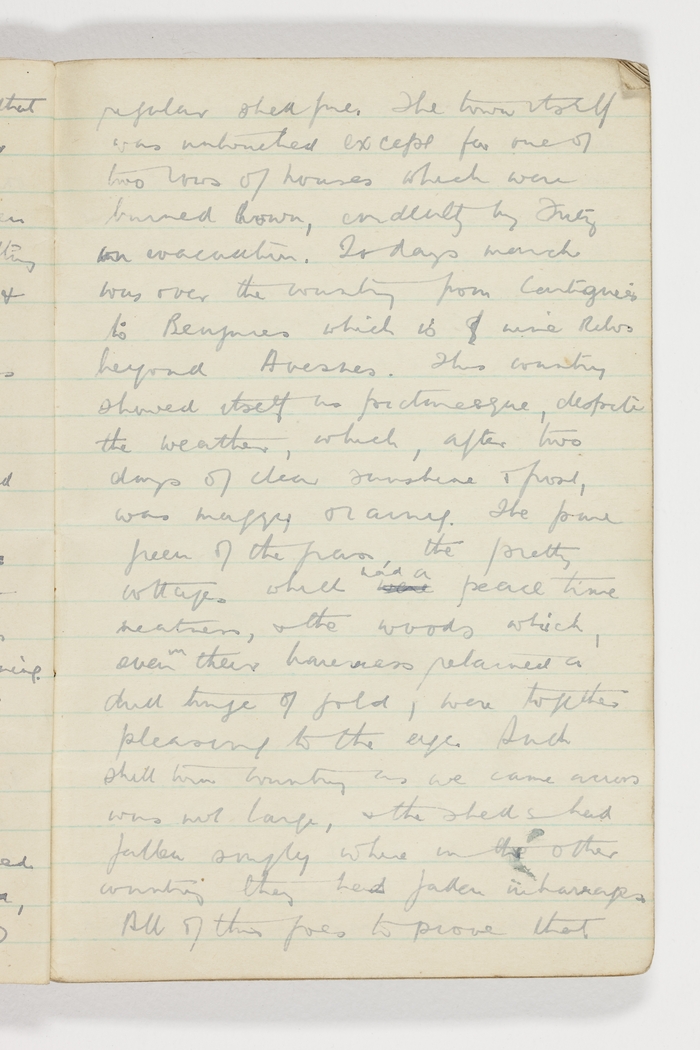 that
regular shell fire. The town itself
was untouched except for one of
two rows of houses which were
burned down, evidently by Fritz
on evacuation. Todays march
was over the country from Cartignies
to Beugnies which is nine kilos
beyond Avesnes. This country
showed itself as picturesque, despite
the weather, which, after two
days of clear sunshine & frost,
was muggy or rainy. The pure
green of the grass, the pretty
cottages which had a peace time
neatness, & the woods which,
even in their bareness retained a
dull tinge of gold, were together
pleasing to the eye. Such
shell torn country as we came across
was not large, & the shells had
fallen singly where in the other
country they had fallen in barrages
All of this goes to prove that